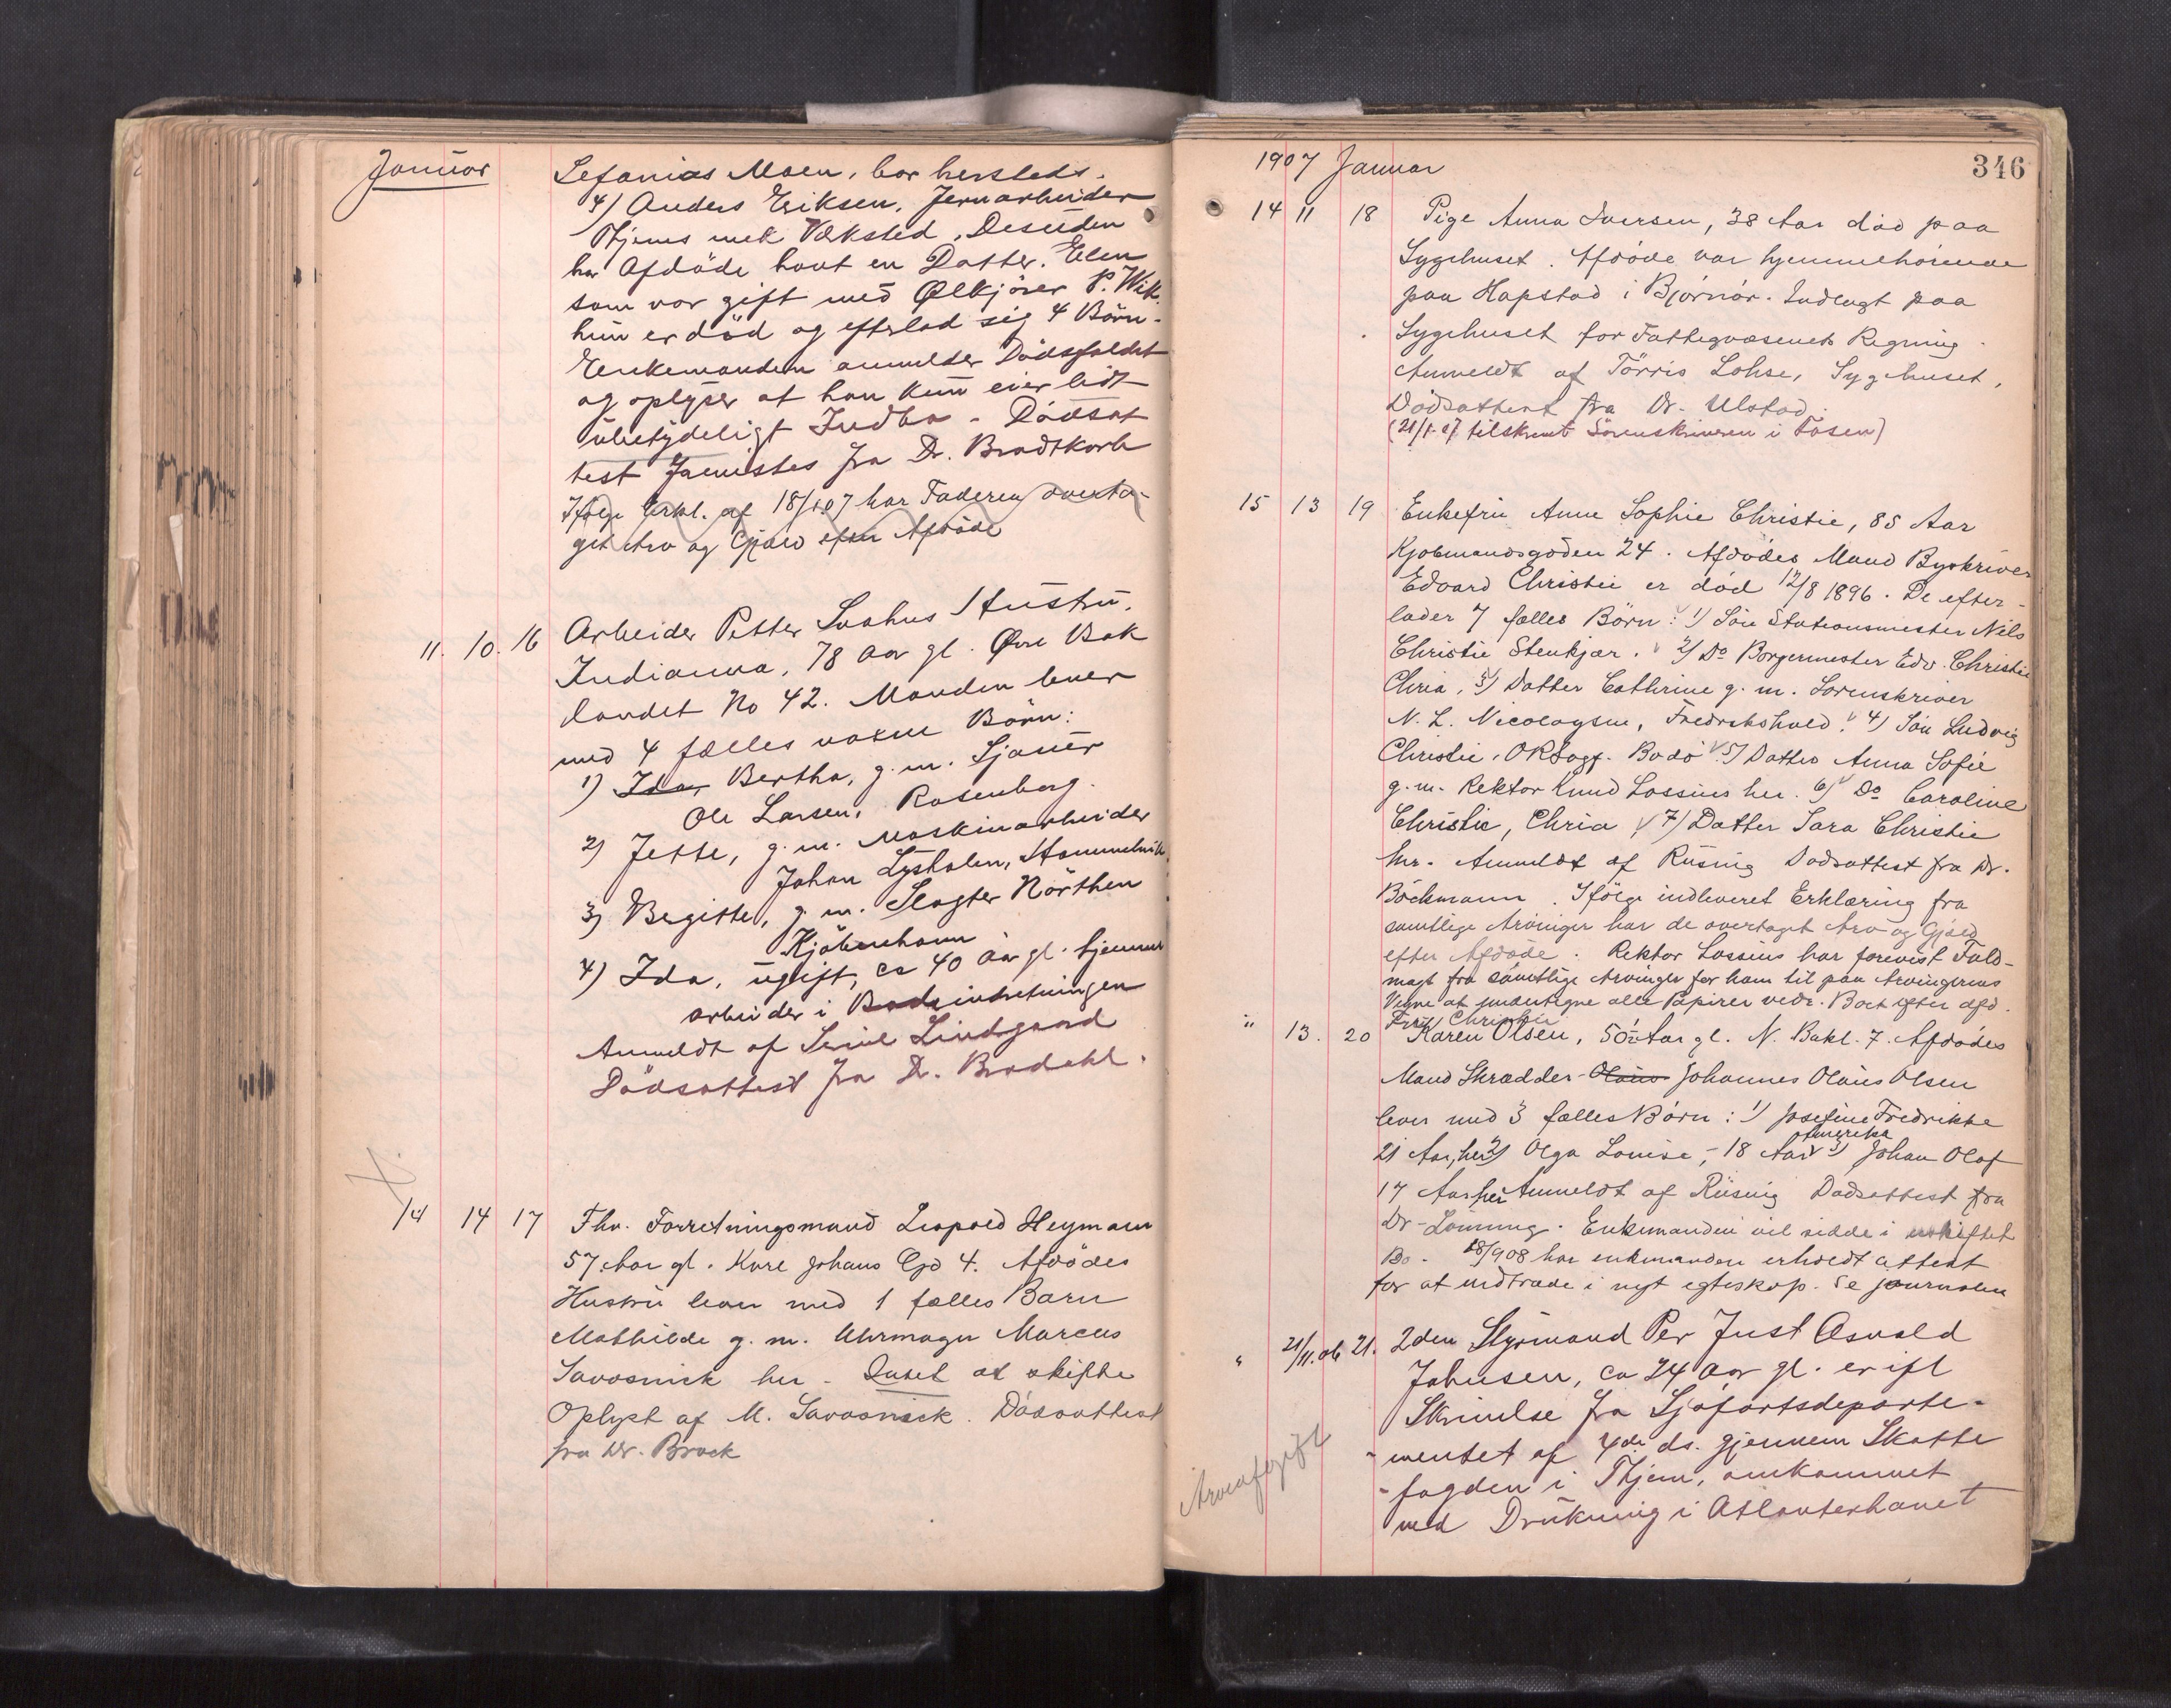 Januar
Sefanias Moen, bor hersteds.
4) Anders Eriksen, Jernarbeider
Thjems mek Værksted. Desuden
har Afdöde havt en Datter, Elen
som var gift med Ølkjörer P. Wik.
hun er död og efterlod sig 4 Börn.
Enkemanden anmelder Dödsfaldet
og oplyser at han kun eier lidt
ubetydeligt Indbo. Dödsat
test fra Dr. Bradtkorb
Ifölge Erkl. af 18/1 07 har Faderen overta-
get Arv og Gjæld efter Afdöde
11. 10. 16 Arbeider Petter Svahus Hustru,
Indianna, 78 Aar gl. Øvre Bak
landet No 42. Manden lever
med 4 fælles voxne Börn:
1) Ida, Bertha, g. m. Sjauer
Ole Larsen, Rosenborg.
2) Jette, g. m. Maskinarbeider
Johan Lysholm, Hommelvik
3) Begitte, g. m. Slagter Nörthen
Kjöbenhavn
4) Ida, ugift, ca 40 Aar gl. hjemme
arbeider i Badeindretningen
Anmeldt af Lindgaard
Dödsattest fra Dr. Bredahl.
14 14 17 Fhv. Forretningsmand Leopold Heymann
57 Aar gl. Kare Johans Gd 4. Afdödes
Hustru lever med 1 fælles Barn
Mathilde g. m. Uhrmager Marcus
Savosnick her. Intet at skifte
Oplyst af M. Savosnick. Dödsattest
fra Dr. Brock
1907 Januar
346
14 11 18 Pige Anna Iversen, 38 Aar död paa
Sygehuset. Afdöde var hjemmehörende
paa Hapstad i Björnör. Indlagt paa
Sygehuset for Fattigvæsenets Regning.
Anmeldt af Törris Lohse, Sygehuset,
Dödsattest fra Dr. Ulstad.
(21/1-07 tilskrevet Sorenskriveren i Fosen)
15 13 19 Enkefru Anne Sophie Christie, 85 Aar
Kjöbmandsgaden 24. Afdödes Mand Byskriver
Edvard Christie er död 12/8 1896. De efter-
lader 7 fælles Börn: 1) Sön Stationsmester Nils
Christie Stenkjær. 2) Do Borgermester Edv. Christie
Chria, 3) Datter Cathrine g. m. Sorenskriver
N. L. Nicolaysen, Fredrikshald. 4) Sön Ludvig
Christie, ORSagf. Bodö 5) Datter Anna Sofie
g. m. Rektor Knud Lossius her. 6) Do Caroline
Christie, Chria 7) Datter Sara Christie
her. Anmeldt af Riising Dödsattest fra Dr.
Böckmann. Ifölge indleveret Erklæring fra
samtlige Arvinger har de overtaget Arv og Gjæld
efter Afdöde. Rektor Lossius har forevist Fuld-
magt fra samtlige Arvinger for ham til paa Arvingernes
Vegne at undertegne alle Papirer vedr. Boet efter afd.
Fru Christie
" 13. 20 Karen Olsen, 50 Aar gl. N. Bakl. 7. Afdödes
Mand Skrædder Olaus Johannes Olaus Olsen
lever med 3 fælles Börn: 1) Josefine Fredrikke
21 Aar, her 2) Olga Louise, 18 Aar Amerika 3) Johan Olaf
17 Aar her Anmeldt af Riising Dödsattest fra
Dr. Lönning. Enkemanden vil sidde i uskiftet
Bo. 18/9 08 har enkemanden erholdt attest
for at indtræde i nyt egteskap. Se journalen
" 21/11.06 21. 2den Styrmand Per Just Osvald
Johnsen, ca 24 Aar gl. er ifl
Skrivelse fra Sjöfartsdeparte-
mentet af 4de ds. gjennem Skatte
fogden i Thjem, omkommet
ved Drukning i Atlanterhavet
Arveafgift